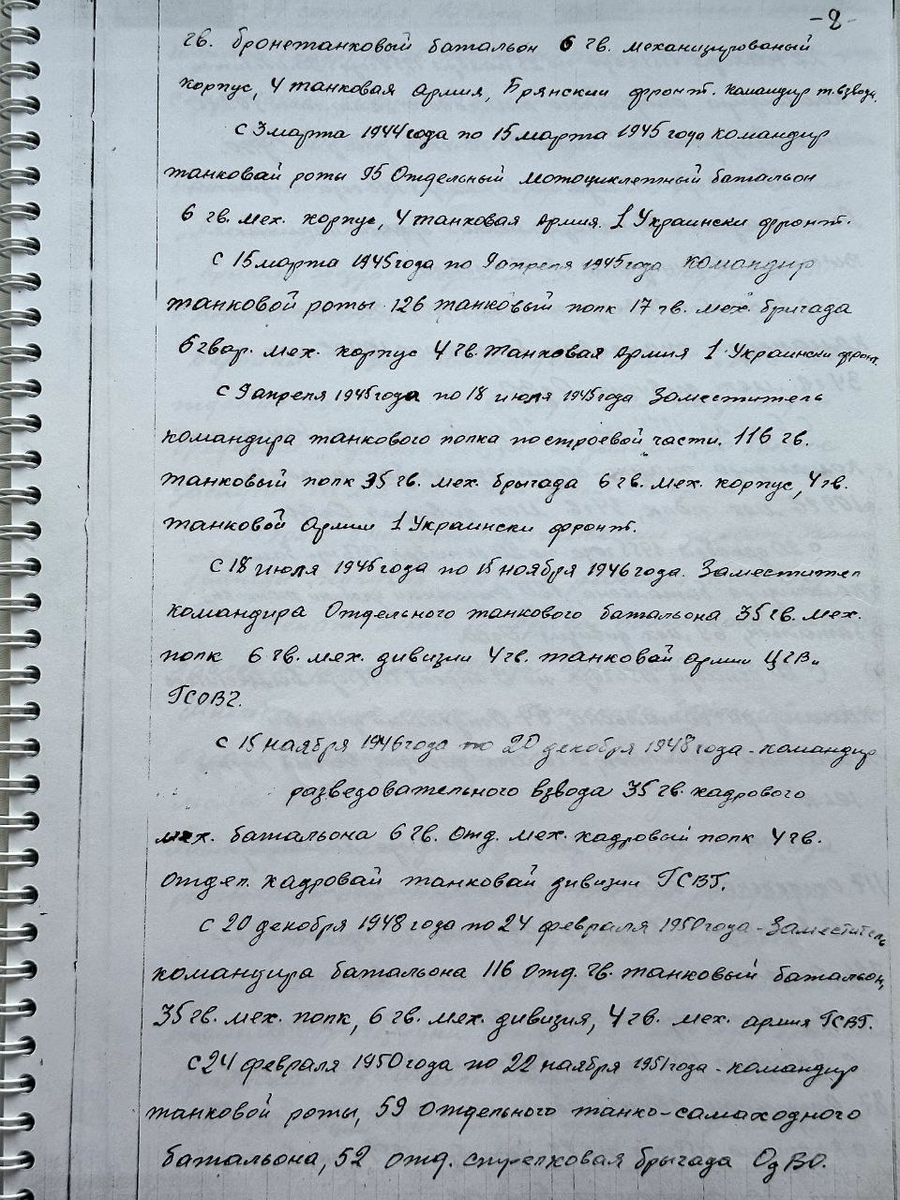 -2-
гв. бронетанковый батальон 6 гв. механизированый
корпус, 4 танковая армия, Брянский фронт. командир т. взвода.
с 3 марта 1944 года по 15 марта 1945 года командир
танковай роты 95 Отдельный мотоциклетный батальон
6 гв. мех. корпус, 4 танковая Армия. 1 Украински фронт.
с 15 марта 1945 года по 9 апреля 1945 года командир
танковой роты 126 танковый полк 17 гв. мех. бригада
6 гвар. мех. корпус 4 гв. Танковая Армия 1 Украински фронт.
с 9 апреля 1945 года по 18 июля 1945 года Заместитель
командира танкового полка по строевой части. 116 гв.
танковый полк 35 гв. мех. бригада 6 гв. мех. корпус, 4 гв.
танковой Армии 1 Украински фронт.
с 18 июля 1945 года по 15 ноября 1946 года. Заместител
командира Отдельного танкового батальона 35 гв. мех.
полк 6 гв. мех. дивизии 4 гв. танковай армии ЦГВ и
ГСОВГ.
с 15 ноября 1946 года по 20 декабря 1948 года - командир
разведовательного взвода 35 гв. кадрового
мех. батальона 6 гв. Отд. мех. кадровый полк 4 гв.
Отдел. кадровай танковай дивизии ГСВГ.
с 20 декабря 1948 года по 24 февраля 1950 года - Заместитель
командира батальона 116 отд. гв. танковый батальон,
35 гв. мех. полк, 6 гв. мех. дивизия, 4 гв. мех. армия ГСВГ.
с 24 февраля 1950 года по 22 ноября 1951 года - командир
танковой роты, 59 отдельного танко-самаходного
батальона, 52 отд. стрелковая бригада ОдВО.